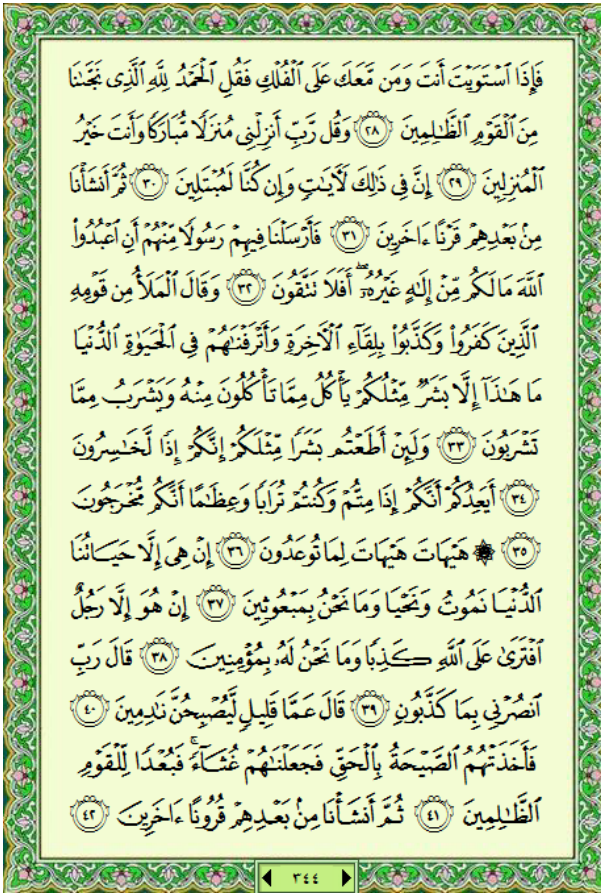 فَإِذَا ٱسْتَوَيْتَ أَنتَ وَمَن مَّعَكَ عَلَى ٱلْفُلْكِ فَقُلِ ٱلْحَمْدُ لِلَّهِ ٱلَّذِى نَجَّىٰنَا
مِنَ ٱلْقَوْمِ ٱلظَّـٰلِمِينَ ٢٨ وَقُل رَّبِّ أَنزِلْنِى مُنزَلًا مُّبَارَكًا وَأَنتَ خَيْرُ
ٱلْمُنزِلِينَ ٢٩ إِنَّ فِى ذَٰلِكَ لَـَٔايَـٰتٍ وَإِن كُنَّا لَمُبْتَلِينَ ٣٠ ثُمَّ أَنشَأْنَا
مِنۢ بَعْدِهِمْ قَرْنًا ءَاخَرِينَ ٣١ فَأَرْسَلْنَا فِيهِمْ رَسُولًا مِّنْهُمْ أَنِ ٱعْبُدُوا۟
ٱللَّهَ مَا لَكُم مِّنْ إِلَـٰهٍ غَيْرُهُۥٓ ۖ أَفَلَا تَتَّقُونَ ٣٢ وَقَالَ ٱلْمَلَأُ مِن قَوْمِهِ
ٱلَّذِينَ كَفَرُوا۟ وَكَذَّبُوا۟ بِلِقَآءِ ٱلْـَٔاخِرَةِ وَأَتْرَفْنَـٰهُمْ فِى ٱلْحَيَوٰةِ ٱلدُّنْيَا
مَا هَـٰذَآ إِلَّا بَشَرٌ مِّثْلُكُمْ يَأْكُلُ مِمَّا تَأْكُلُونَ مِنْهُ وَيَشْرَبُ مِمَّا
تَشْرَبُونَ ٣٣ وَلَئِنْ أَطَعْتُم بَشَرًا مِّثْلَكُمْ إِنَّكُمْ إِذًا لَّخَـٰسِرُونَ
٣٤ أَيَعِدُكُمْ أَنَّكُمْ إِذَا مِتُّمْ وَكُنتُمْ تُرَابًا وَعِظَـٰمًا أَنَّكُم مُّخْرَجُونَ
٣٥ ۞ هَيْهَاتَ هَيْهَاتَ لِمَا تُوعَدُونَ ٣٦ إِنْ هِىَ إِلَّا حَيَاتُنَا
ٱلدُّنْيَا نَمُوتُ وَنَحْيَا وَمَا نَحْنُ بِمَبْعُوثِينَ ٣٧ إِنْ هُوَ إِلَّا رَجُلٌ
ٱفْتَرَىٰ عَلَى ٱللَّهِ كَذِبًا وَمَا نَحْنُ لَهُۥ بِمُؤْمِنِينَ ٣٨ قَالَ رَبِّ
ٱنصُرْنِى بِمَا كَذَّبُونِ ٣٩ قَالَ عَمَّا قَلِيلٍ لَّيُصْبِحُنَّ نَـٰدِمِينَ ٤٠
فَأَخَذَتْهُمُ ٱلصَّيْحَةُ بِٱلْحَقِّ فَجَعَلْنَـٰهُمْ غُثَآءً ۚ فَبُعْدًا لِّلْقَوْمِ
ٱلظَّـٰلِمِينَ ٤١ ثُمَّ أَنشَأْنَا مِنۢ بَعْدِهِمْ قُرُونًا ءَاخَرِينَ ٤٢
٣٤٤